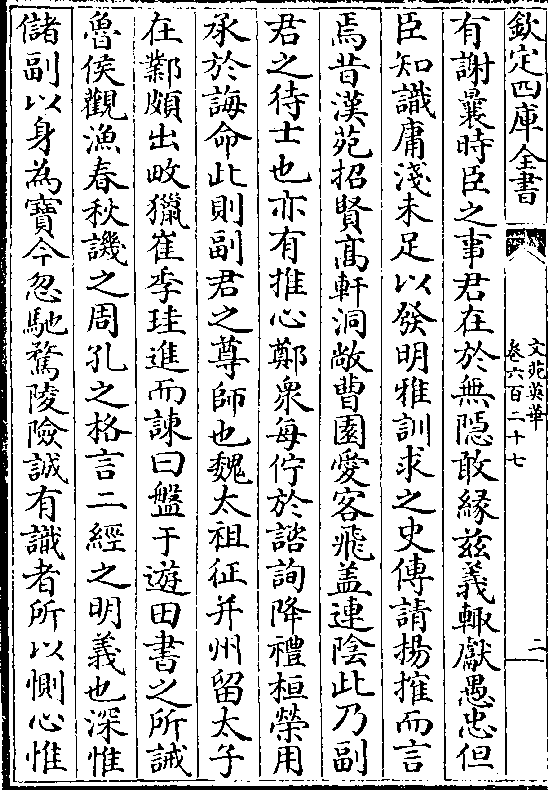 欽定四庫全書
文苑英華
卷六百二十七
二
有謝曩時臣之事君在於無隠敢縁兹義輙獻愚忠但
臣知識庸淺未足以發明雅訓求之史傳請揚搉而言
焉昔漢苑招賢髙軒洞敞曹園愛客飛盖連陰此乃副
君之待士也亦有推心鄭衆每佇於諮詢降禮桓榮用
承於誨命此則副君之尊師也魏太祖征并州留太子
在鄴頗出畋獵崔季珪進而諫曰盤于遊田書之所誡
魯侯觀漁春秋譏之周孔之格言二經之明義也深惟
儲副以身為寳今忽馳騖陵險誠有識者所以惻心惟